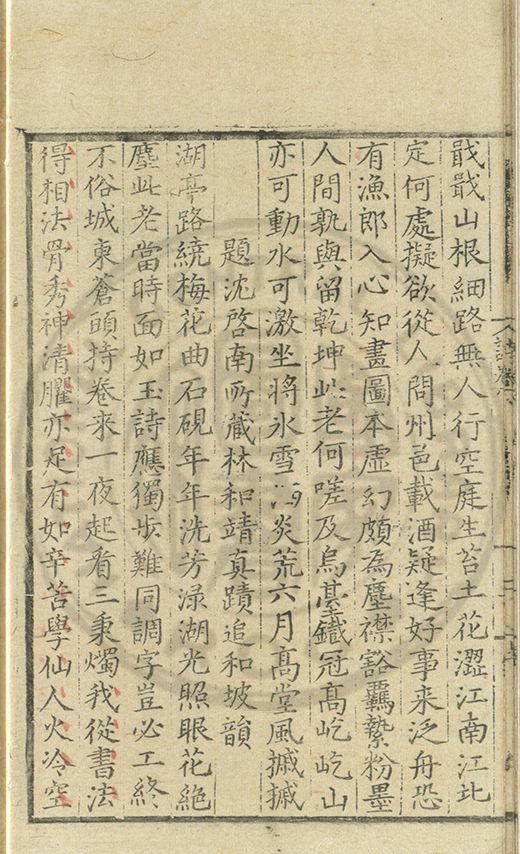 戢戢山根細路無人行空庭生苔土花澀江南江北
定何處擬欲從人問州邑載酒疑逢好事来泛舟恐
有漁郎入心知畫圖本虛幻頗為塵襟豁羈縶粉墨
人間孰與留乾坤此老何嗟及烏臺鐵冠髙屹屹山
亦可動水可激坐將氷雪 炎荒六月髙堂風摵摵
題沈啓南所藏林和靖真蹟追和坡韻
湖亭路繞梅花曲石硯年年洗芳渌湖光照眼花絶
塵此老當時面如玉詩應獨步難同調字豈必工終
不俗城東蒼頭持卷来一夜起看三秉燭我從書法
得相法骨秀神清臞亦足有如辛苦學仙人火冷空